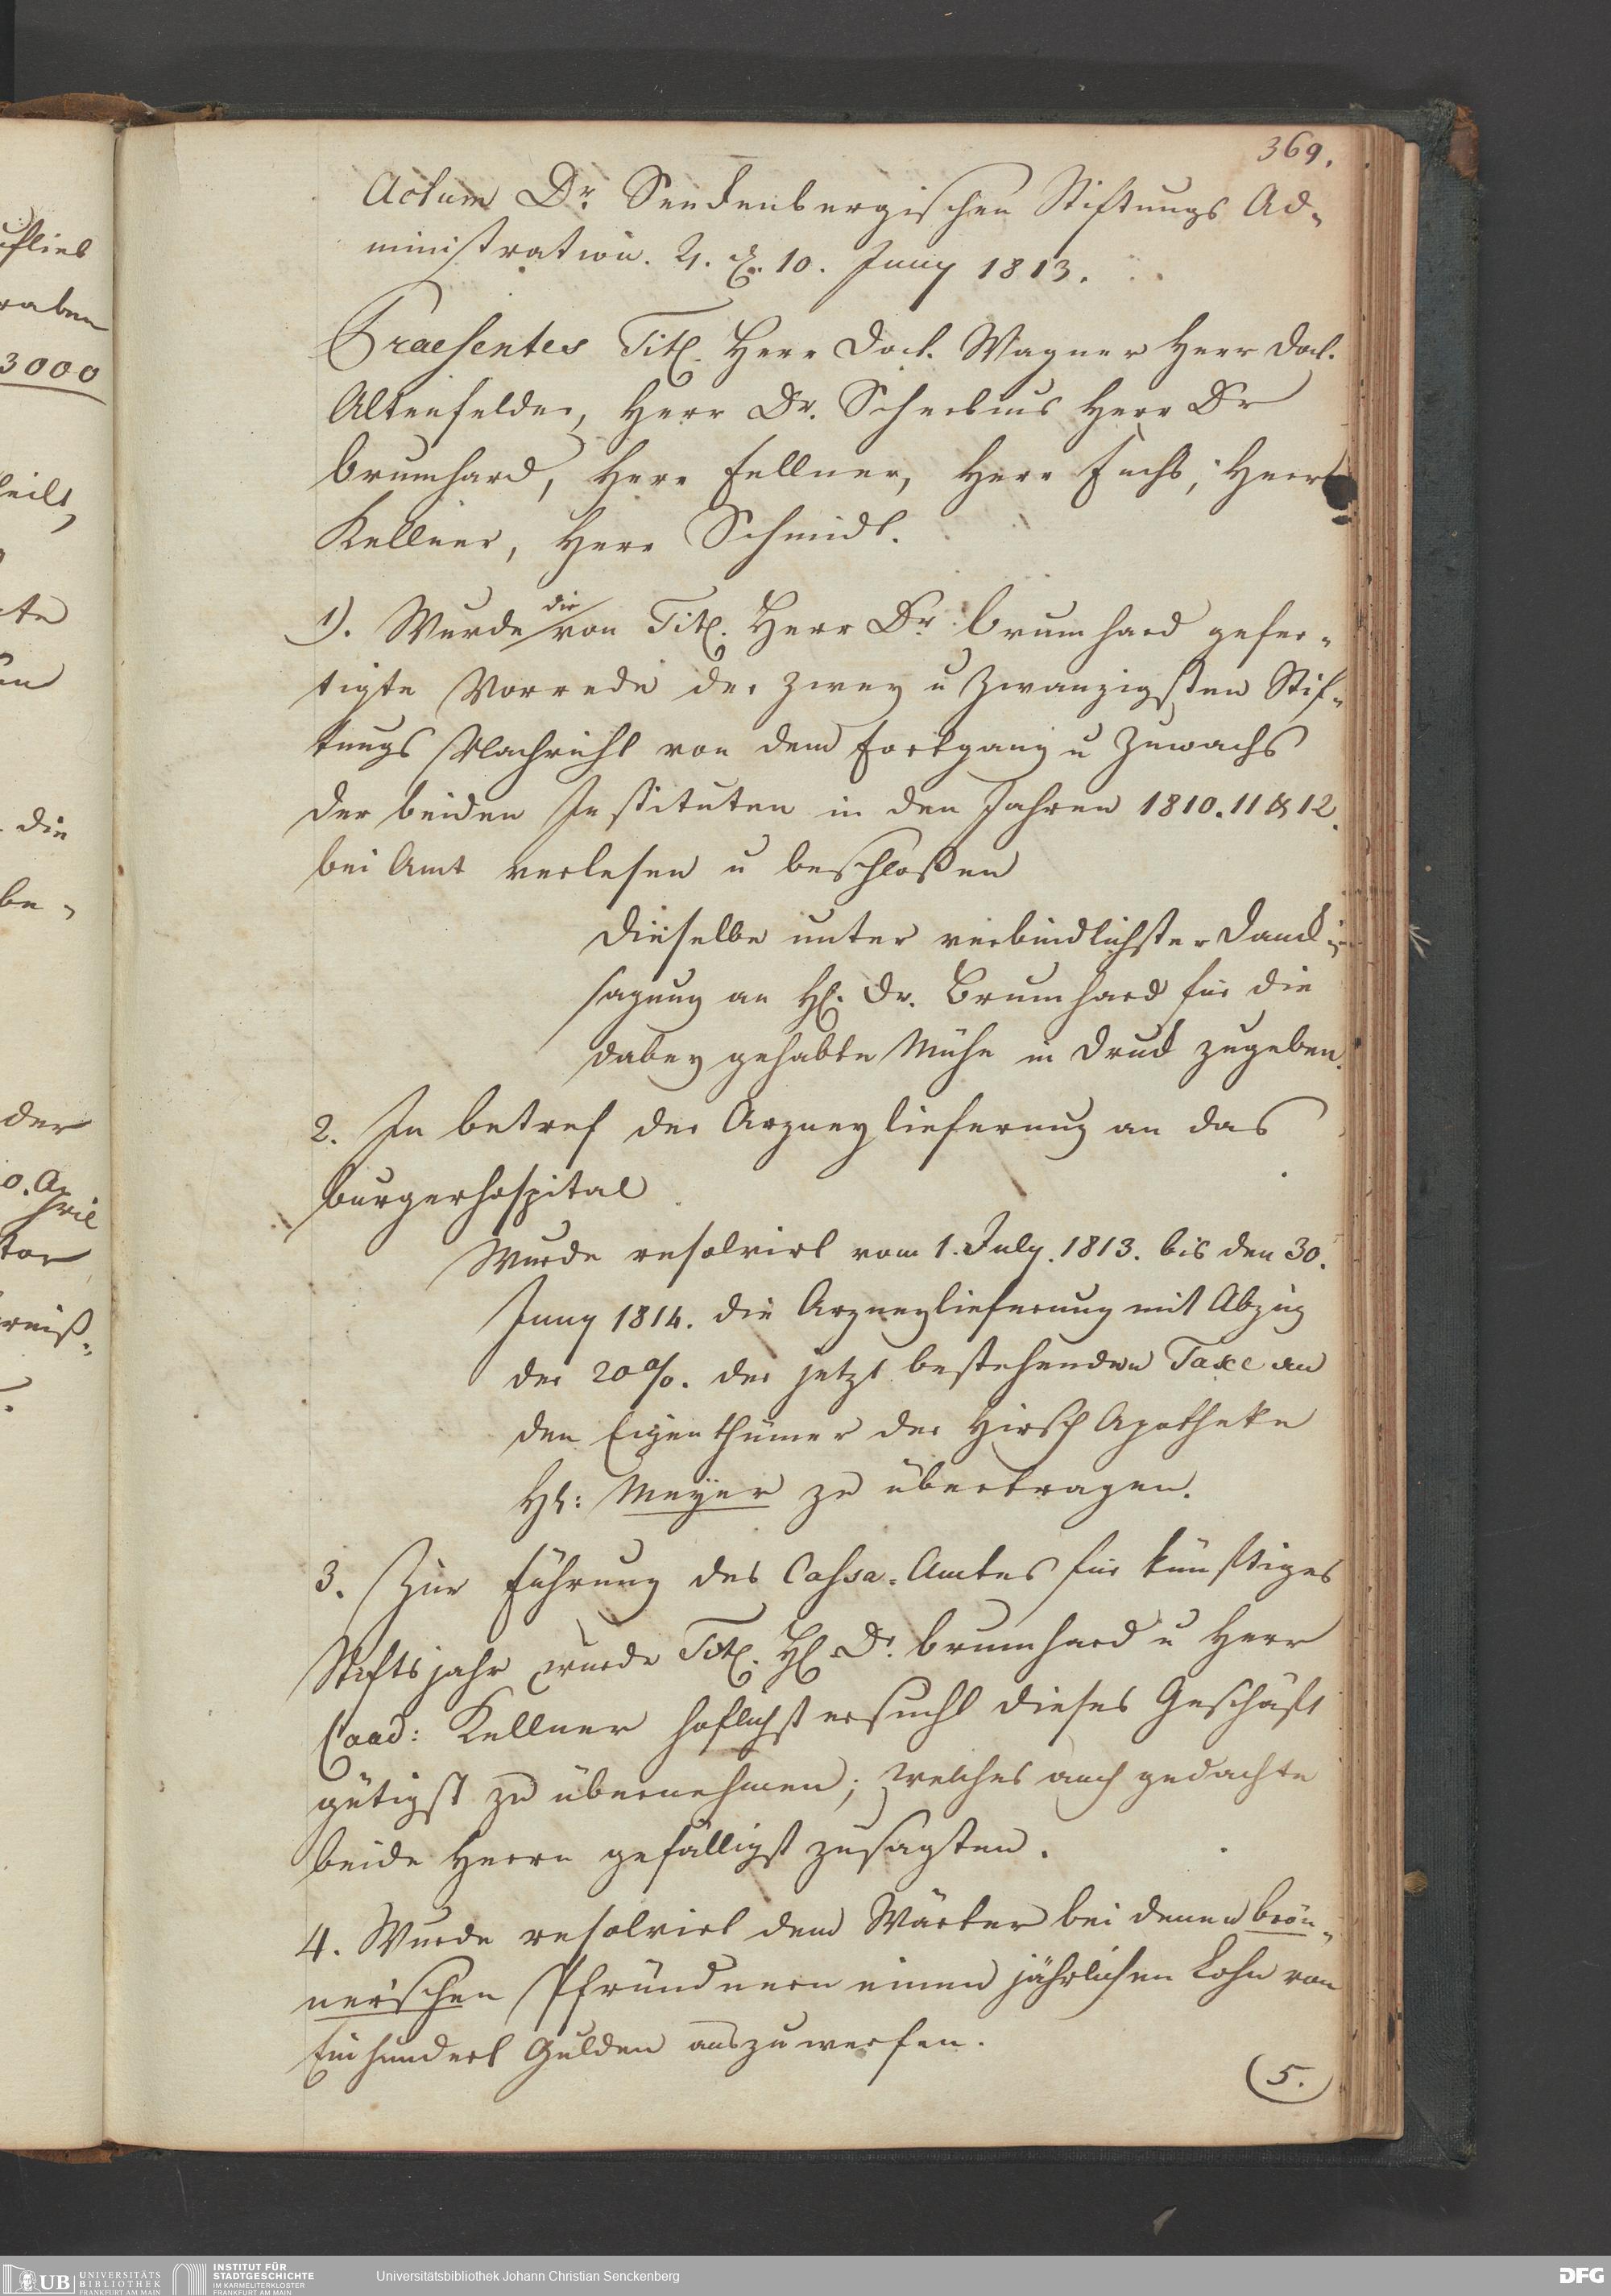 369.
Actum Dr. Senckenbergischen Stiftungs Ad-
ministration. ♃. d. 10. Juny 1813.
Praesentes Tit. Herr Doct. Wagner Herr Doct.
Altenfelder, Herr Dr. Scherbius Herr Dr
Brumhard, Herr Fellner, Herr Fuchs, Herr
Kellner, Herr Schmidt.
1). Wurde die von Tit. Herr Dr. Brumhard gefer-
tigte Vorrede der zwey u zwanzigsten Stif-
tungs Nachricht von dem Fortgang u Zuwachs
der beiden Instituten in den Jahren 1810. 11 & 12.
bei Amt verlesen u beschloßen
dieselbe unter verbindlichster Danck-
sagung an H. Dr. Brumhard für die
dabey gehabte Mühe in Druck zugeben.
2. In betref der Arzneylieferung an das
Burgerhospital
Wurde resolvirt vom 1. July. 1813. bis den 30.
Juny 1814. die Arzneylieferung mit Abzug
der 20 %. der jetzt bestehenden Taxe an
den Eigenthümer der Hirsch Apotheke
H: Meyer zu übertragen.
3. Zur Führung des Cassa-Amtes für künftiges
Stiftsjahr wurde Tit. H Dr. Brumhard u Herr
Cand: Kellner höflichst ersucht dieses Geschäft
gütigst zu übernehmen; welches auch gedachte
beide Herrn gefälligst zusagten.
4. Wurde resolvirt dem Wärter bei denen Brön-
nerischen Pfründnern einen jährlichen Lohn von
Einhundert Gulden auszuwerfen.
(5.
3000
die
be-
der
0. April
UB UNIVERSITÄTS BIBLIOTHEK FRANKFURT AM MAIN
INSTITUT FÜR STADTGESCHICHTE IM KARMELITERKLOSTER FRANKFURT AM MAIN
Universitätsbibliothek Johann Christian Senckenberg
DFG